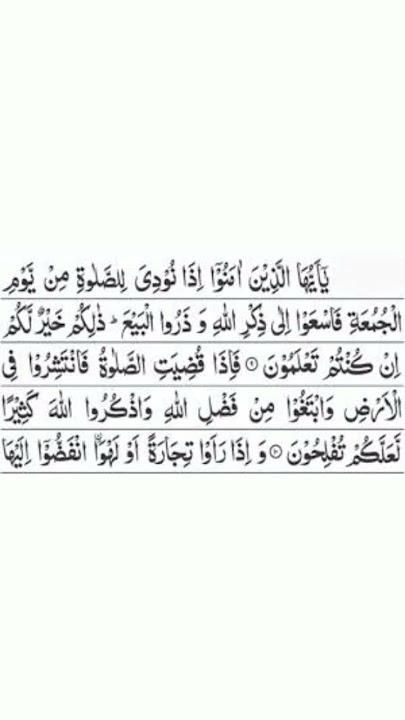 يٰۤاَيُّهَا الَّذِيْنَ اٰمَنُوْۤا اِذَا نُوْدِىَ لِلصَّلٰوةِ مِنْ يَّوْمِ
الْجُمُعَةِ فَاسْعَوْا اِلٰى ذِكْرِ اللّٰهِ وَ ذَرُوا الْبَيْعَ ؕ ذٰلِكُمْ خَيْرٌ لَّكُمْ
اِنْ كُنْتُمْ تَعْلَمُوْنَ ۞ فَاِذَا قُضِيَتِ الصَّلٰوةُ فَانْتَشِرُوْا فِى
الْاَرْضِ وَابْتَغُوْا مِنْ فَضْلِ اللّٰهِ وَاذْكُرُوا اللّٰهَ كَثِيْرًا
لَّعَلَّكُمْ تُفْلِحُوْنَ ۞ وَ اِذَا رَاَوْا تِجَارَةً اَوْ لَهْوَاۨ انْفَضُّوْۤا اِلَيْهَا